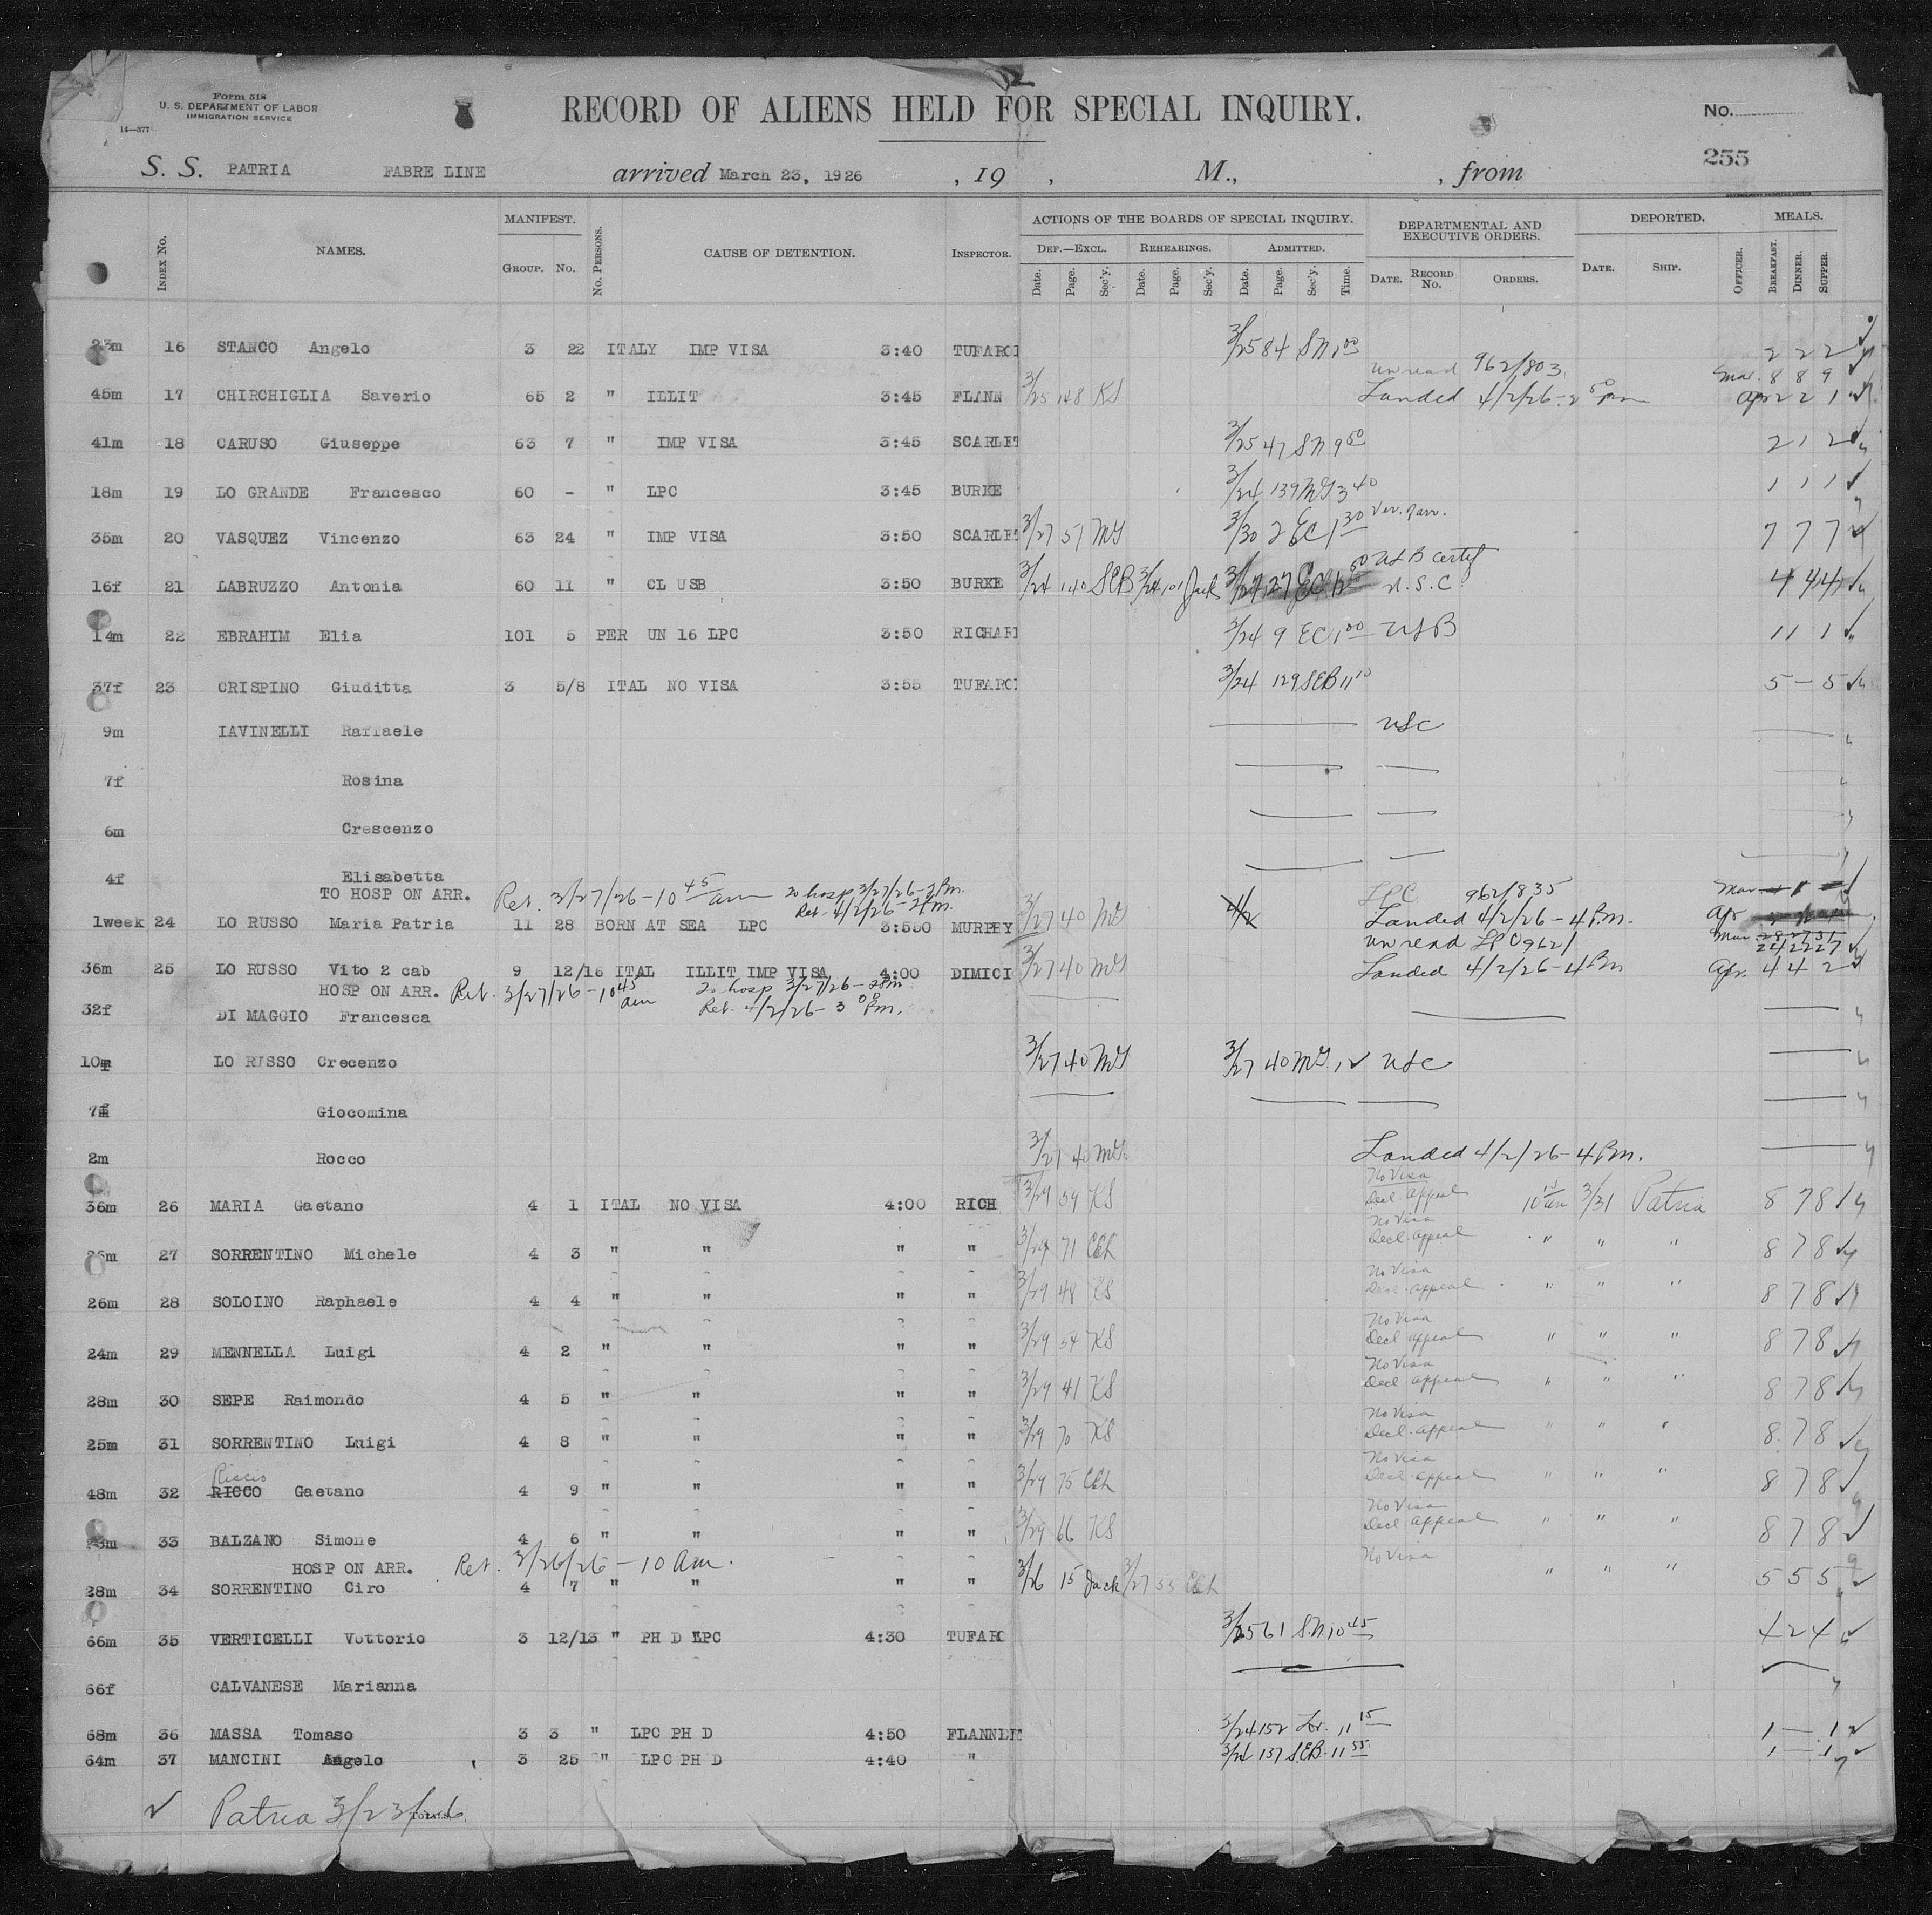 Form 518
U. S. DEPARTMENT OF LABOR
IMMIGRATION SERVICE
14—377
RECORD OF ALIENS HELD FOR SPECIAL INQUIRY.
No.
255
S. S. PATRIA FABRE LINE arrived March 23, 1926 , 19 , M., , from
INDEX No. NAMES. MANIFEST. GROUP. No. No. PERSONS. CAUSE OF DETENTION. INSPECTOR. ACTIONS OF THE BOARDS OF SPECIAL INQUIRY. DEF.—EXCL. Date. Page. Sec'y. REHEARINGS. Date. Page. Sec'y. ADMITTED. Date. Page. Sec'y. Time. DEPARTMENTAL AND EXECUTIVE ORDERS. DATE. RECORD No. ORDERS. DEPORTED. DATE. SHIP. OFFICER. MEALS. BREAKFAST. DINNER. SUPPER.
23m 16 STANCO Angelo 3 22 ITALY IMP VISA 3:40 TUFARO 3/25 84 SN 1 00 2 2 2
unread 962/803 Mar. 8 8 9
45m 17 CHIRCHIGLIA Saverio 65 2 " ILLIT 3:45 FLANN 3/25 148 KS Landed 4/2/26- 2 50 pm Apr 2 2 1
41m 18 CARUSO Giuseppe 63 7 " IMP VISA 3:45 SCARLET 3/25 47 SN 9 50 2 1 2
18m 19 LO GRANDE Francesco 60 - " LPC 3:45 BURKE 3/24 139 MG 3 40 1 1 1
35m 20 VASQUEZ Vincenzo 63 24 " IMP VISA 3:50 SCARLET 3/27 51 MG 3/30 2 EC 1 30 Ver. 7 arr. 7 7 7
16f 21 LABRUZZO Antonia 60 11 " CL USB 3:50 BURKE 3/24 140 SEB 3/24 101 Jack 3/27 27 EC 12 USB Certif
U.S.C. 4 4 4
14m 22 EBRAHIM Elia 101 5 PER UN 16 LPC 3:50 RICHAR 3/24 9 EC 1 00 USB 1 1 1
37f 23 CRISPINO Giuditta 3 5/8 ITAL NO VISA 3:55 TUFARO 3/24 129 SEB 11 10 5 — 5
9m IAVINELLI Raffaele USC
7f Rosina
6m Crescenzo
4f Elisabetta
TO HOSP ON ARR. Ret. 3/27/26-10 45 am To hosp 3/27/26-2 Pm. LPC 962/835 Mar
Ret. 4/2/26-
1week 24 LO RUSSO Maria Patria 11 28 BORN AT SEA LPC 3:550 MURPHY 3/27 40 MG 4/2 Landed 4/2/26-4 P.m. Apr
unread LPC 962/ Mar
36m 25 LO RUSSO Vito 2 cab 9 12/16 ITAL ILLIT IMP VISA 4:00 DIMICI 3/27 40 MG Landed 4/2/26-4 Pm Apr. 4 4 2
HOSP ON ARR. Ret. 3/27/26-10 45 am To hosp 3/27/26-
32f DI MAGGIO Francesca Ret. 4/2/26-3 00 Pm.
10m LO RUSSO Crecenzo 3/27 40 MG 3/27 40 MG. USC
7f Giocomina
2m Rocco 3/27 40 MG. Landed 4/2/26-4 P.m.
36m 26 MARIA Gaetano 4 1 ITAL NO VISA 4:00 RICH 3/29 59 KS No Visa Decl appeal 10 15 am 3/31 Patria 8 7 8
26m 27 SORRENTINO Michele 4 3 " " " " 3/29 71 CEh No Visa Decl. appeal " " " 8 7 8
26m 28 SOLOINO Raphaele 4 4 " " " " 3/29 48 KS No Visa Decl. appeal " " " 8 7 8
24m 29 MENNELLA Luigi 4 2 " " " " 3/29 54 KS No Visa Decl appeal " " " 8 7 8
28m 30 SEPE Raimondo 4 5 " " " " 3/29 41 KS No Visa Decl appeal " " " 8 7 8
25m 31 SORRENTINO Luigi 4 8 " " " " 3/29 70 KS No Visa Decl. appeal " " " 8 7 8
Riccio
48m 32 RICCO Gaetano 4 9 " " " " 3/29 75 CEh No Visa Decl. appeal " " " 8 7 8
23m 33 BALZANO Simone 4 6 " " " " 3/29 66 KS No Visa Decl. appeal " " " 8 7 8
HOSP ON ARR. Ret. 3/26/26 - 10 Am. No Visa
28m 34 SORRENTINO Ciro 4 7 " " " " 3/26 15 Jack 3/27 55 CEh " " " 5 5 5
66m 35 VERTICELLI Vottorio 3 12/13 " PH D LPC 4:30 TUFARO 3/25 61 S.N 10 45 4 2 4
66f CALVANESE Marianna
68m 36 MASSA Tomaso 3 3 " LPC PH D 4:50 FLANNE 3/24 152 11 15 1 — 1
64m 37 MANCINI Angelo 3 25 " LPC PH D 4:40 " 3/24 137 S.E.B. 11 55 1 — 1
Patria 3/23/26